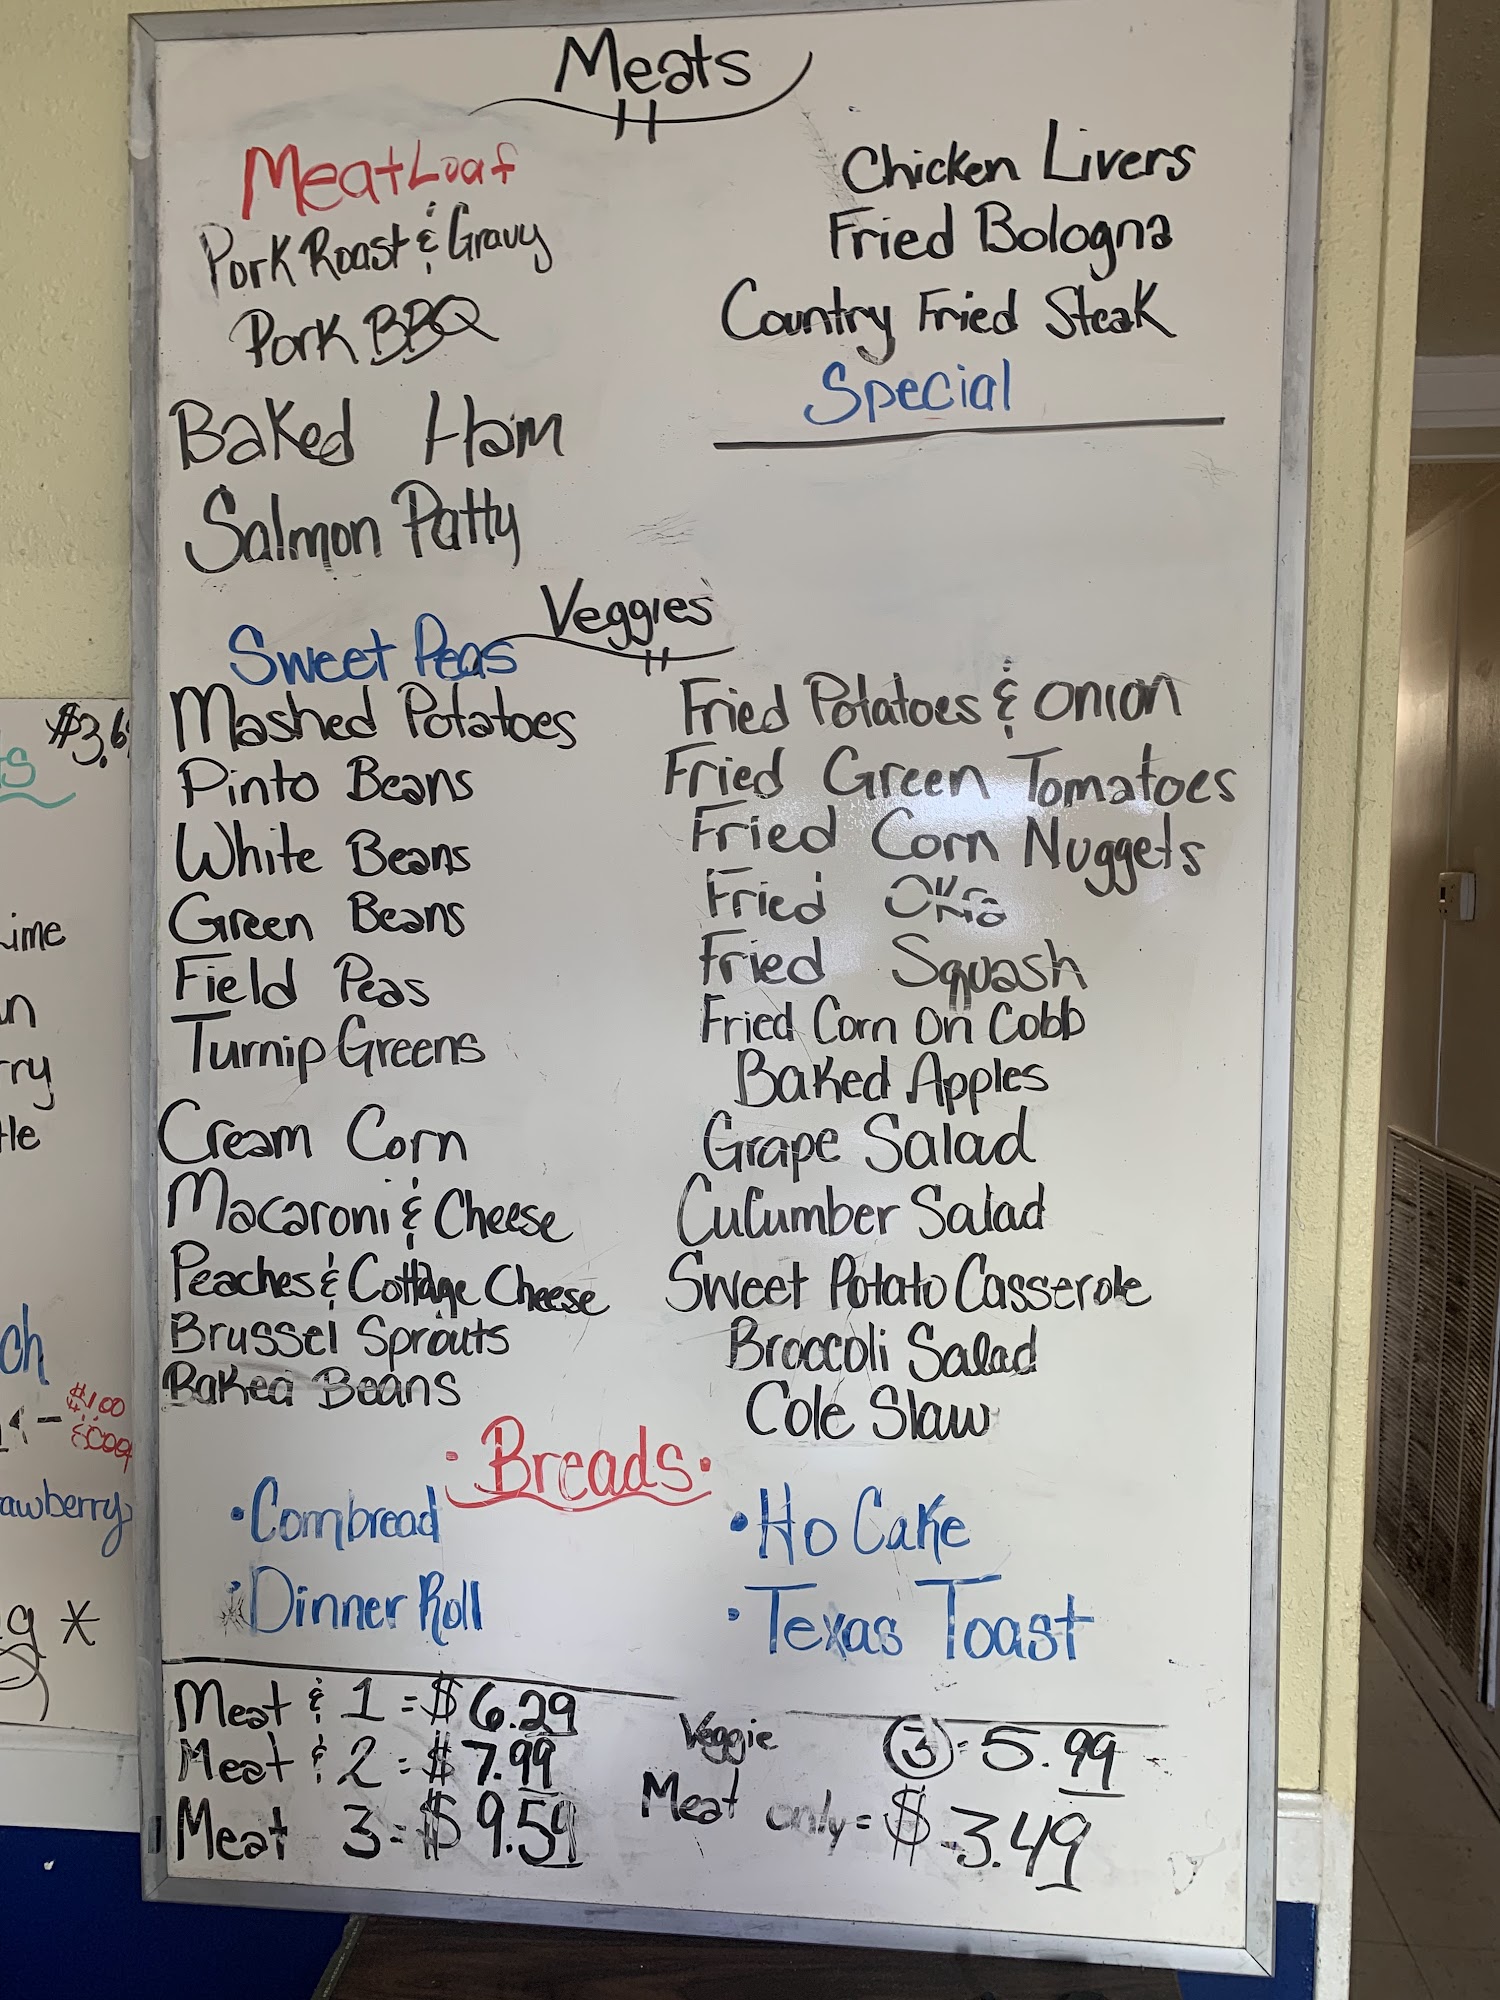 Meats
MeatLoaf
Pork Roast & Gravy
Pork BBQ
Baked Ham
Salmon Patty
Chicken Livers
Fried Bologna
Country Fried Steak
Special
Veggies
Sweet Peas
Mashed Potatoes
Pinto Beans
White Beans
Green Beans
Field Peas
Turnip Greens
Cream Corn
Macaroni & Cheese
Peaches & Cottage Cheese
Brussel Sprouts
Baked Beans
Fried Potatoes & Onion
Fried Green Tomatoes
Fried Corn Nuggets
Fried Okra
Fried Squash
Fried Corn On Cobb
Baked Apples
Grape Salad
Cucumber Salad
Sweet Potato Casserole
Broccoli Salad
Cole Slaw
• Breads •
• Cornbread
• Dinner Roll
• Ho Cake
• Texas Toast
Meat & 1 = $6.29
Meat & 2 = $7.99
1 Meat 3 = $9.59
Veggie 3 = 5.99
Meat only = $3.49
$3.6
ime
rry
tle
ch
$1.00
awberry